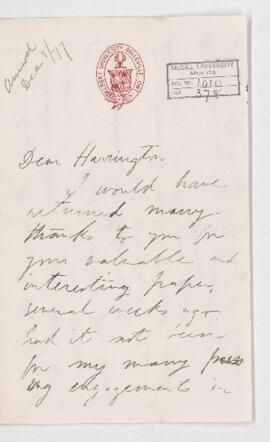 Answd
Dec 4/77
ALBERT UNIVERSITY BELLEVILLE ONT
McGILL UNIVERSITY
ARCHIVES
ACC. NO. 1010
REF. 378
Dear Harrington
I would have
returned many
thanks to you for
your valuable and
interesting paper,
several weeks ago,
had it not been
for my many press
ing engagements in